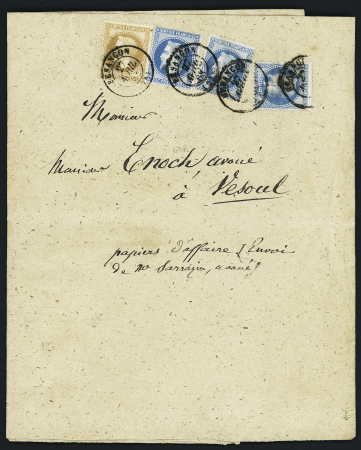 BESANÇON
BESANÇON
BESANÇON
Monsieur
Monsieur Enoch avoué
à Vesoul
papiers d'affaire / Envoi
de Me Sarrazin, avoué